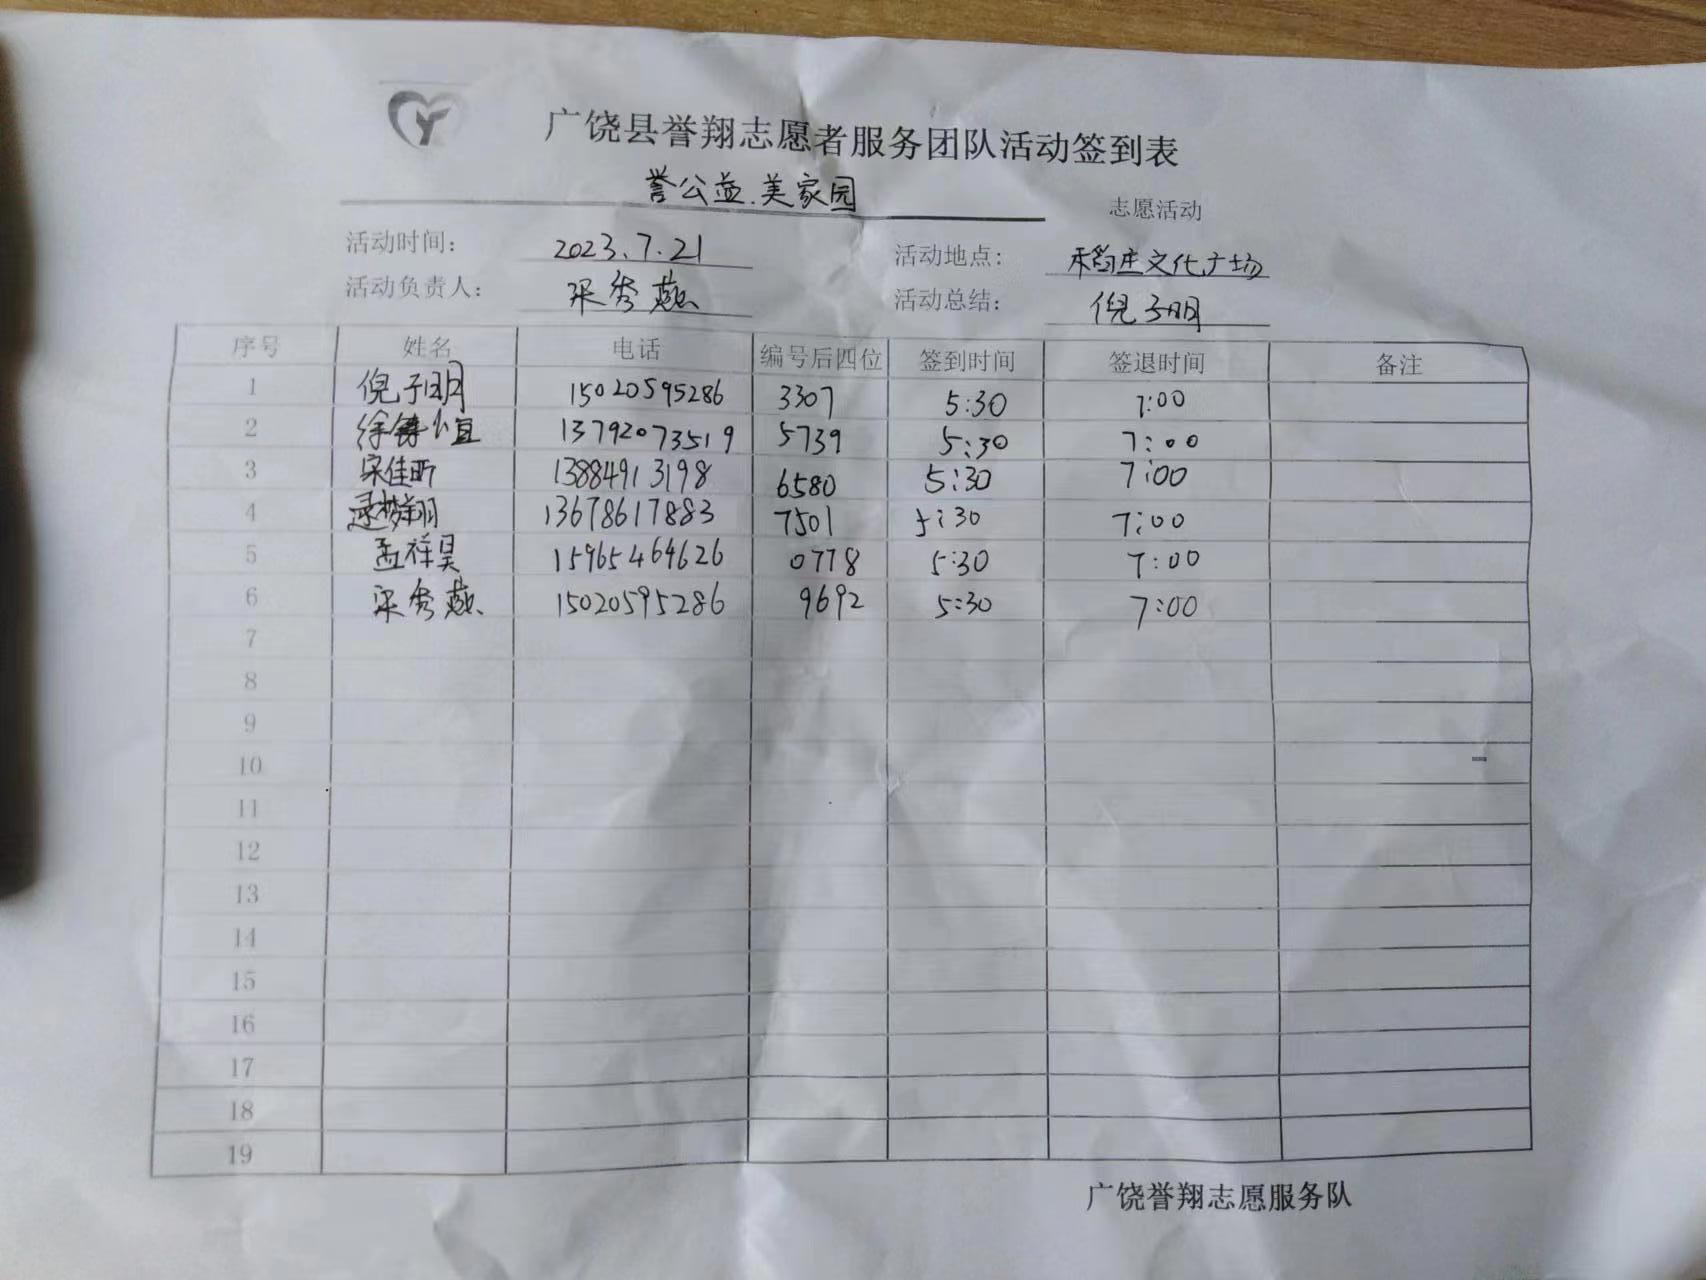 广饶县誉翔志愿者服务团队活动签到表
誉公益.美家园 志愿活动
活动时间: 2023.7.21 活动地点: 稻庄文化广场
活动负责人: 梁秀燕 活动总结: 倪子明
序号 姓名 电话 编号后四位 签到时间 签退时间 备注
1 倪子明 15020595286 3307 5:30 7:00
2 13792073519 5739 5:30 7:00
3 宋佳昕 13884913198 6580 5:30 7:00
4 13678617883 7501 5:30 7:00
5 孟祥昊 15965464626 0778 5:30 7:00
6 梁秀燕 15020595286 9692 5:30 7:00
7
8
9
10
11
12
13
14
15
16
17
18
19
广饶誉翔志愿服务队